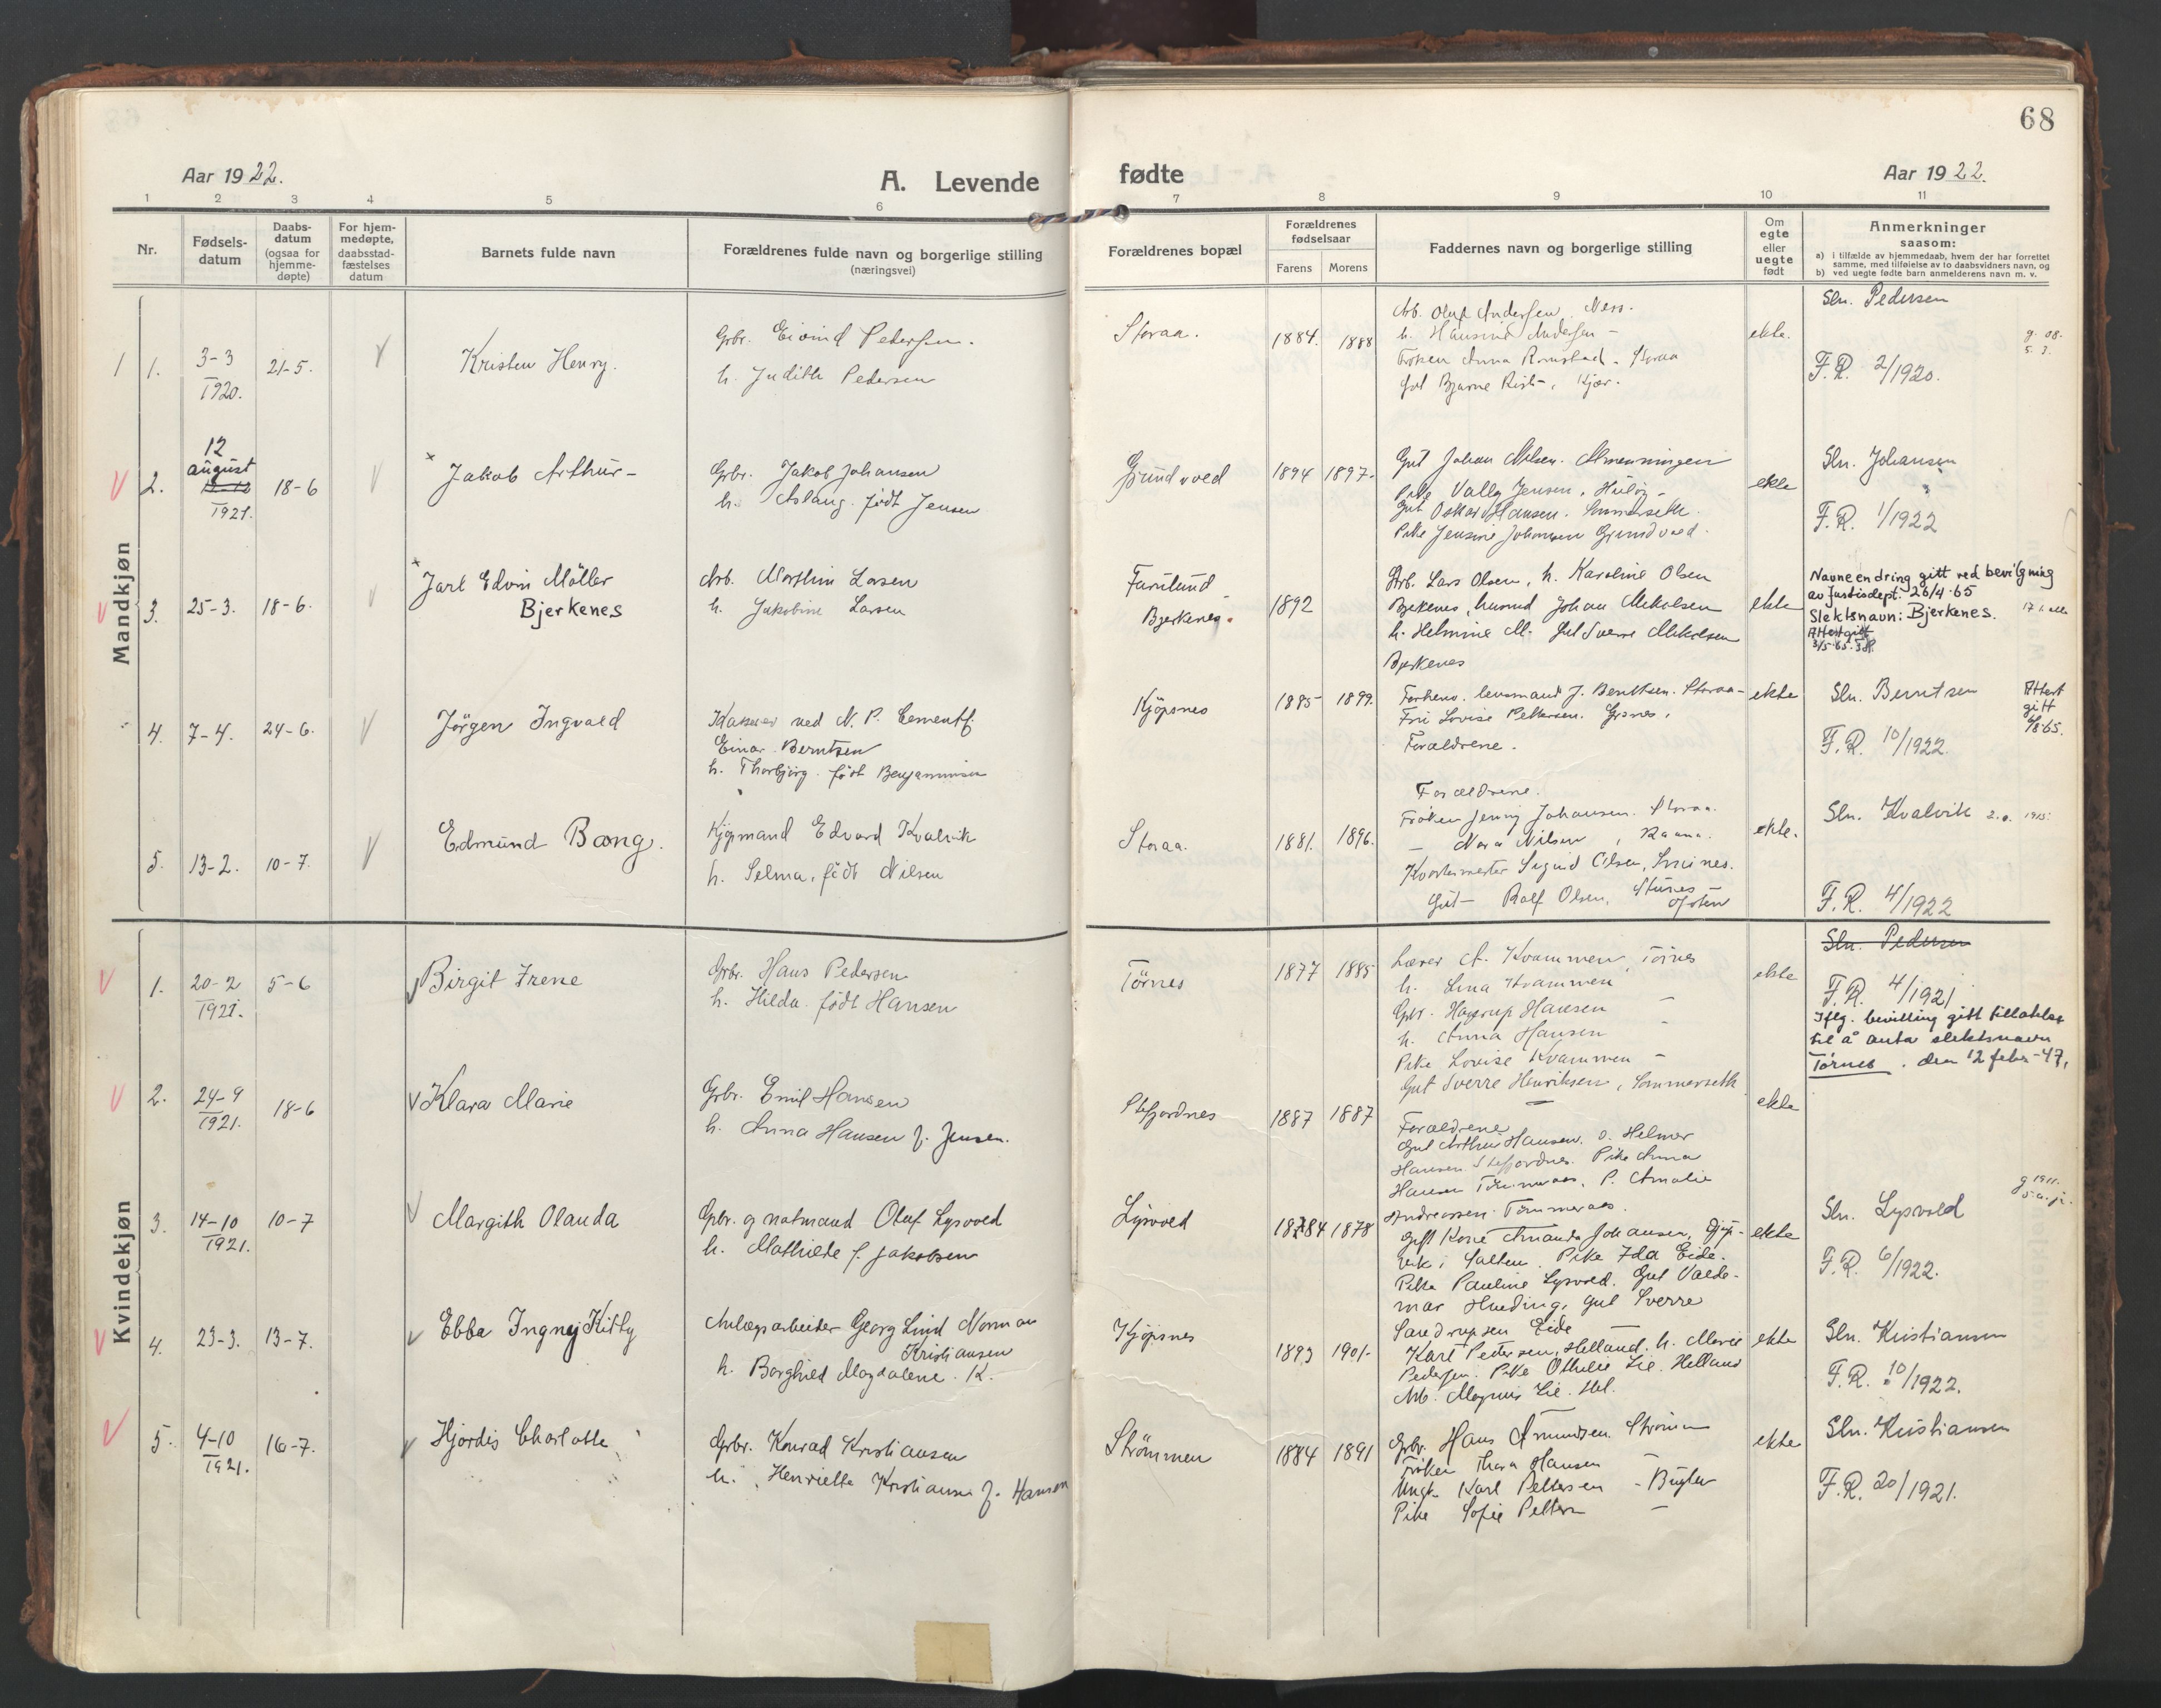 68
Aar 1922.
A. Levende
fødte
Aar 1922.
1 2 3 4 5 6 7 8 9 10 11
Nr.
Fødsels-
datum
Daabs-
datum
(ogsaa for
hjemme-
døpte)
For hjem-
medøpte,
daabsstad-
fæstelses
datum
Barnets fulde navn
Forældrenes fulde navn og borgerlige stilling
(næringsvei)
Forældrenes bopæl
Forældrenes
fødselsaar
Farens Morens
Faddernes navn og borgerlige stilling
Om
egte
eller
uegte
født
Anmerkninger
saasom:
a) i tilfælde av hjemmedaab, hvem der har forrettet
samme, med tilføielse av to daabsvidners navn, og
b) ved uegte fødte barn anmelderens navn m. v.
Mandkjøn
1.
3-3
1920.
21-5.
Kristen Henry.
Grbr. Eivind Pedersen.
h. Judith Pedersen
Storaa.
1884. 1888
Arb. Oluf Andersen. Ness.
h. Andersen -
Frøken Anna - Storaa
Gut Bjarne Kjær.
ekte.
Sln. Pedersen
F.R. 2/1920.
2.
12
august
1921.
18-6
Jakob Arthur-
Grbr. Jakob Johansen
h. Aslaug. født Jensen
Grundvoed
1894 1897-
Gut Johan Nilsen. Almenningen
Pike Vally Jensen,
Gut Oskar Hansen.
Pike Jensine Johansen Grundvoed.
ekte
Sln. Johansen
F.R. 1/1922
3.
25-3.
18-6.
Jarl Edvin Möller
Bjerkenes
Arb. Morthin Larsen
h. Jakobine Larsen
Bjerkenes.
1892
Grb. Lars Olsen, h. Karoline Olsen
Bjerkenes, husmd Johan Mikalsen
h. Helmine M. Gut Sverre Mikalsen
Bjerkenes
ekte
Navneendring gitt ved bevilgning
av Justisdept. 26/4-65
Slektsnavn: Bjerkenes.
Attest gitt
3/5-65.
4.
7-4.
24-6.
Jörgen Ingvald
Kasserer ved N. P. Cementf.
Einar Berntsen
h. Thorbjörg. født Benjaminsen
Kjöpsnes
1885 1899.
Forhenv. lensmand J. Bentksen. Storaa-
Fru Lovise Pettersen.
Forældrene.
ekte
Sln. Berntsen
F.R. 10/1922.
Attest
gitt
4/8-65.
5.
13-2.
10-7.
Edmund Bang.
Kjøpmand Edvard Kvalvik
h. Selma, født Nilsen
Storaa.
1881. 1896.
Forældrene.
Frøken Jenny Johansen. Storaa.
- Nora Nilsen,
Kvartermester Sigurd Olsen,
Gut- Rolf Olsen,
ekte.
Sln. Kvalvik
F.R. 4/1922
Kvindekjøn
1.
20-2
1921.
5-6
Birgit Irene
Grbr. Hans Pedersen
h. Hilda. født Hansen
Törnes
1877 1885
Lærer A. Kvammen, Törnes
h. Lina Kvammen
Grbr. Hagerup Hansen -
h. Anna Hansen -
Pike Lovise Kvammen -
Gut Sverre Henriksen, Sommerseth
ekte
Sln. Pedersen
F.R. 4/1921
Iflg. bevilling gitt tillatelse
til å anta slektsnavn
Törnes. den 12 febr-47.
2.
24-9
1921.
18-6
Klara Marie
Grbr. Emil Hansen
h. Anna Hansen f. Jensen.
Stefjordnes
1887 1887
Forældrene
Gut Arthur Hansen. o. Helmer
Hansen Stefjordnes. Pike Anna
Hansen Tömmeraas, P. Amalie
Andreassen Tömmeraas.
ekte
3.
14-10
1921.
10-7
Margith Olanda
Grbr. og notmand Oluf Lysvoed
h. Mathilde f. Jakobsen
Lysvoed
1884 1878
Gift Kone Amanda Johansen,
vik i Salten. Pike Ida Eide.
Pike Pauline Lysvoed. Gut Valde-
mar Gut Sverre
Eide
ekte
Sln. Lysvold
F.R. 6/1922.
4.
23-3.
13-7.
Ebba Ingny Kitty
Anlægsarbeider Georg Lind Norman
Kristiansen
h. Borghild Magdalene. K.
Kjöpsnes
1893 1901-
Karl Pedersen, Helland. h. Marie
Pedersen. Pike Othelie Lie. Helland
Arb. Magnus Lie. Hel.
ekte
Sln. Kristiansen
F.R. 10/1922.
5.
4-10
1921.
16-7.
Hjördis Charlotte
Grbr. Konrad Kristiansen
h. Henriette Kristiansen f. Hansen
Strömmen
1884 1891
Grbr. Hans Amundsen. Strömmen
Frøken Thora Hansen -
Ungk. Karl Pettersen -
Pike Sofie Petters -
ekte
Sln. Kristiansen
F.R. 20/1921.